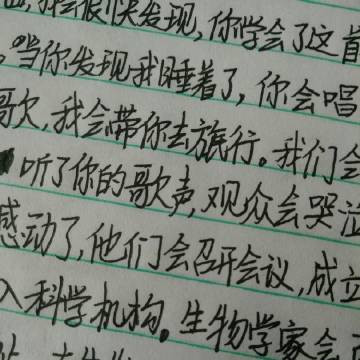 我会很快发现,你学会了这首
。当你发现我睡着了,你会唱
歌,我会带你去旅行。我们会
听了你的歌声,观众会哭泣
感动了,他们会召开会议,成立
入科学机构。生物学家会